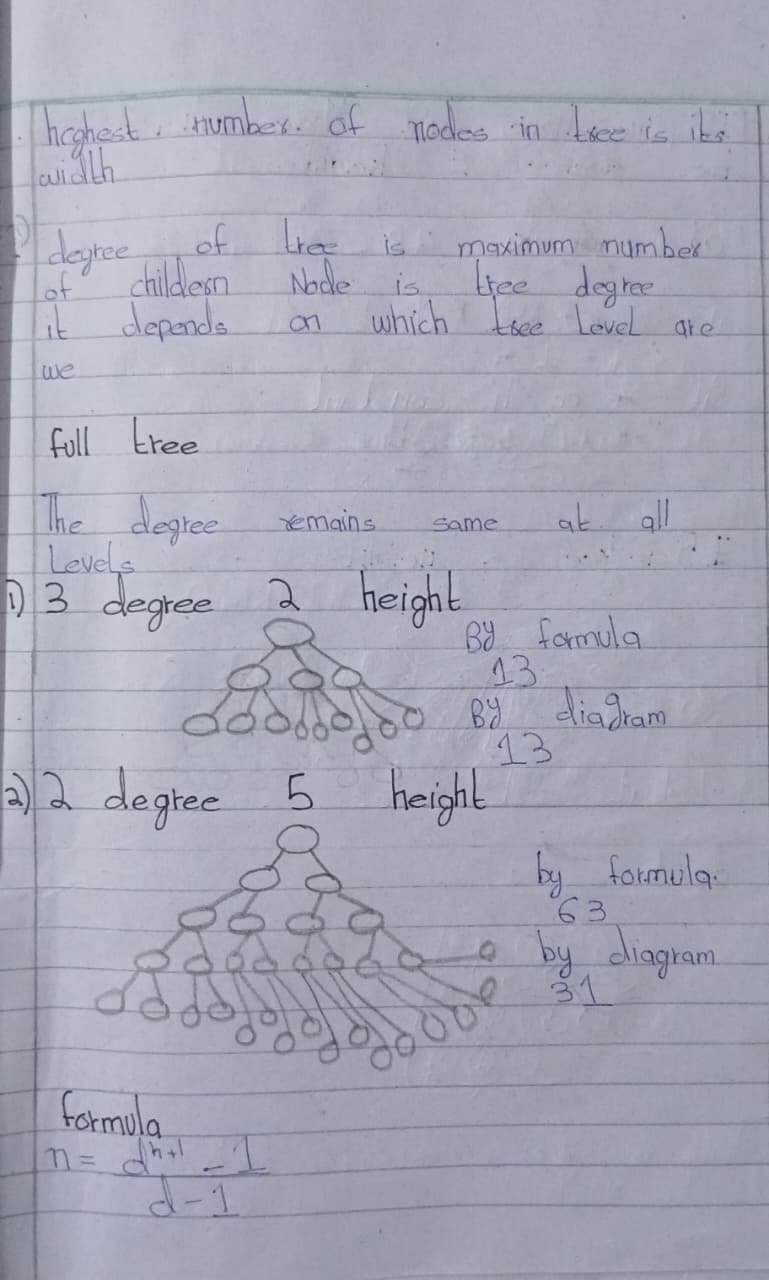 heghest. number. of nodes in tree is its
width
degree of tree is maximum number
of childern Node is tree degree
it depends on which tree Level are
we
full tree
The degree remains same at all
Levels
1) 3 degree 2 height
By formula
13
By diagram
13
2) 2 degree 5 height
by formula.
63
by diagram
31
formula
n = d^h+1 - 1
d - 1